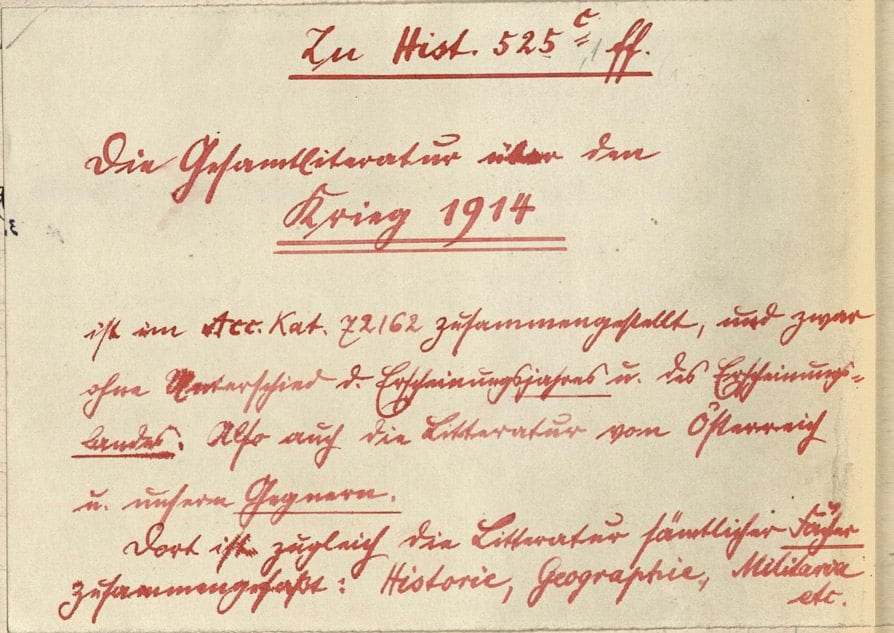 Zu Hist. 525 c ff.
Die Gesamtliteratur über den
Krieg 1914
ist im Acc. Kat. 72/62 zusammengestellt, und zwar
ohne Unterschied d. Erscheinungsjahres u. des Erscheinungs-
landes. Also auch die Litteratur von Österreich
u. unsern Gegnern.
Dort ist zugleich die Litteratur sämtlicher Fächer
zusammengefaßt: Historie, Geographie, Militaria
etc.